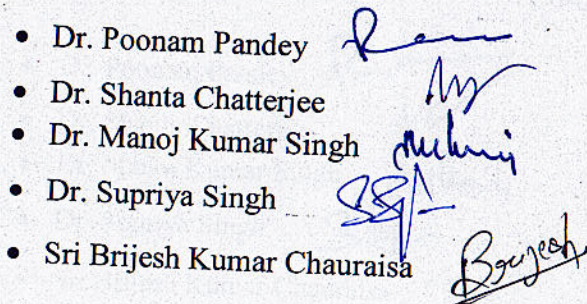 • Dr. Poonam Pandey
• Dr. Shanta Chatterjee
• Dr. Manoj Kumar Singh
• Dr. Supriya Singh
• Sri Brijesh Kumar Chauraisa